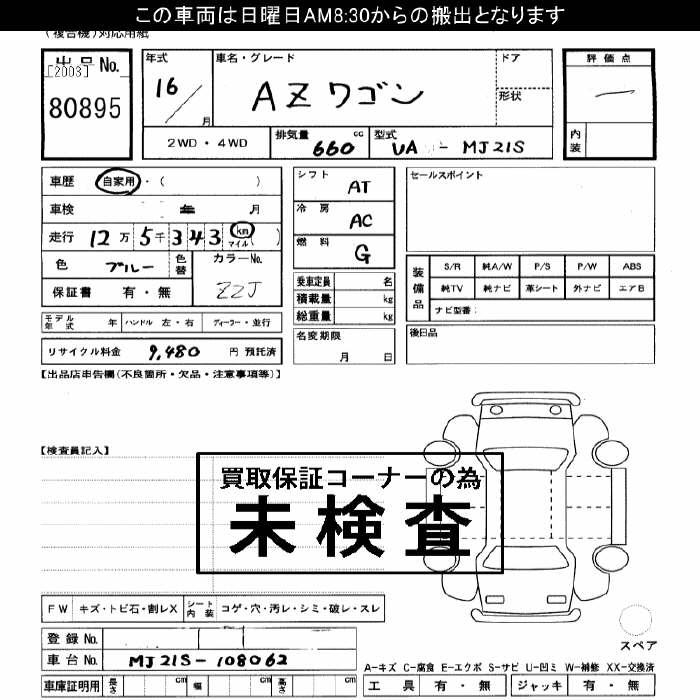 この車両は日曜日AM8:30からの搬出となります
(複合機)対応用紙
出品No.
[2003]
80895
年式
16
月
車名・グレード
AZワゴン
ドア
形状
評価点
内装
2WD・4WD
排気量
660
cc
型式
UA - MJ21S
車歴
自家用・( )
車検
年 月
走行 12万5千343 km ( )
マイル
色
ブルー
色替
カラーNo.
ZZJ
保証書 有・無
モデル年式 年
ハンドル 左・右
ディーラー・並行
リサイクル料金 9,480 円 預託済
シフト
AT
冷房
AC
燃料
G
乗車定員 名
積載量 kg
総重量 kg
名変期限
月 日
セールスポイント
装備品
S/R 純A/W P/S P/W ABS
純TV 純ナビ 革シート 外ナビ エアB
ナビ型番:
後日品
【出品店申告欄(不良箇所・欠品・注意事項等)】
【検査員記入】
買取保証コーナーの為
未検査
FW キズ・トビ石・割レX
シート内装 コゲ・穴・汚レ・シミ・破レ・スレ
登録No.
車台No. MJ21S-108062
車庫証明用 長さ cm 幅 cm 高さ cm
スペア
A-キズ C-腐食 E-エクボ S-サビ U-凹ミ W-補修 XX-交換済
工具 有・無 ジャッキ 有・無